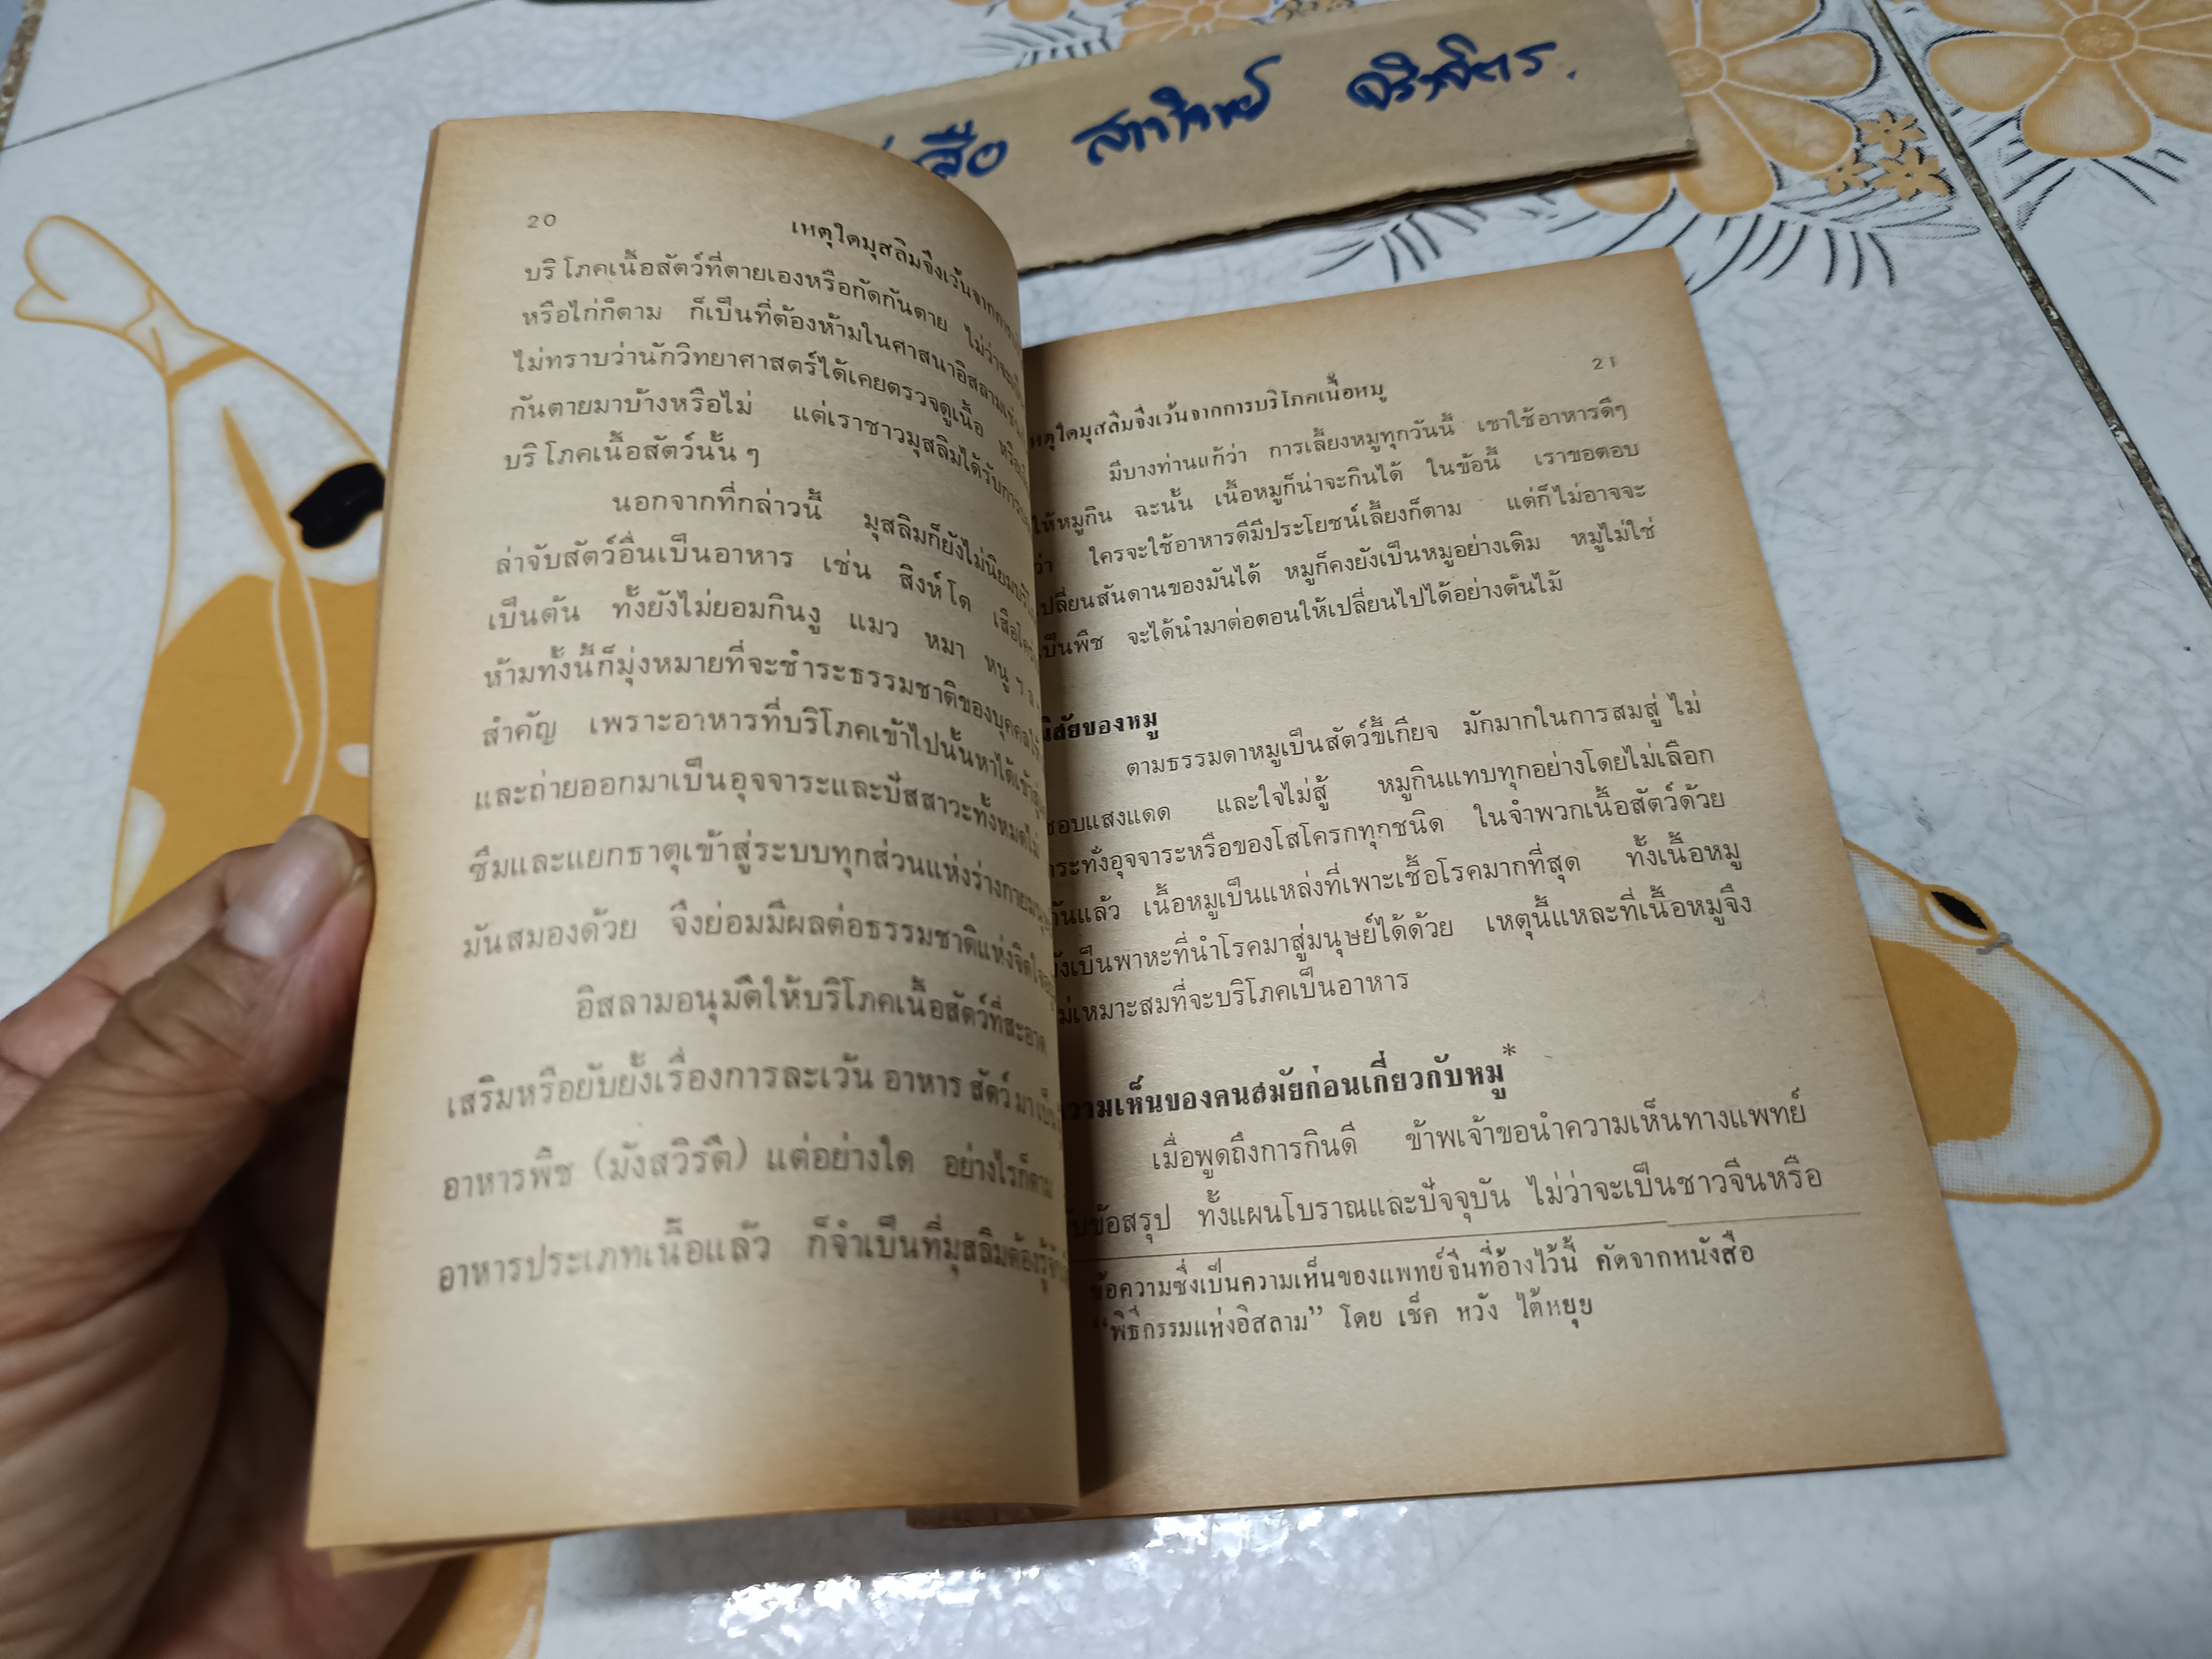 สือ สาทิจหย์ จริงจิตร.
20
เหตุใดมุสลิมจึงเว้นจากการ
บริโภคเนื้อสัตว์ที่ตายเองหรือกัดกันตาย ไม่ว่าจะ
หรือไก่ก็ตาม ก็เป็นที่ต้องห้ามในศาสนาอิสลาม
ไม่ทราบว่านักวิทยาศาสตร์ได้เคยตรวจดูเนื้อ
กันตายมาบ้างหรือไม่ แต่เราชาวมุสลิมได้รับการ
บริโภคเนื้อสัตว์นั้น ๆ
นอกจากที่กล่าวนี้ มุสลิมก็ยังไม่นิยม
ล่าจับสัตว์อื่นเป็นอาหาร เช่น สิงห์โต
เป็นต้น ทั้งยังไม่ยอมกินงู แมว หมา หนู
ห้ามทั้งนี้ก็มุ่งหมายที่จะชำระธรรมชาติของบุคคล
สำคัญ เพราะอาหารที่บริโภคเข้าไปนั้นหาได้เข้า
และถ่ายออกมาเป็นอุจจาระและปัสสาวะทั้งหมดไม่
ซึมและแยกธาตุเข้าสู่ระบบทุกส่วนแห่งร่างกาย
มันสมองด้วย จึงย่อมมีผลต่อธรรมชาติแห่งจิตใจ
อิสลามอนุมัติให้บริโภคเนื้อสัตว์ที่สะอาด
เสริมหรือยับยั้งเรื่องการละเว้น อาหาร สัตว์ มา
อาหารพืช (มังสวิรัติ) แต่อย่างใด อย่างไรก็ตาม
อาหารประเภทเนื้อแล้ว ก็จำเป็นที่มุสลิมต้อง
21
หตุใดมุสลิมจึงเว้นจากการบริโภคเนื้อหมู
มีบางท่านแก้ว่า การเลี้ยงหมูทุกวันนี้ เขาใช้อาหารดีๆ
ให้หมูกิน ฉะนั้น เนื้อหมูก็น่าจะกินได้ ในข้อนี้ เราขอตอบ
ว่า ใครจะใช้อาหารดีมีประโยชน์เลี้ยงก็ตาม แต่ก็ไม่อาจจะ
ปลี่ยนสันดานของมันได้ หมูก็คงยังเป็นหมูอย่างเดิม หมูไม่ใช่
เป็นพืช จะได้นำมาต่อตอนให้เปลี่ยนไปได้อย่างต้นไม้
นิสัยของหมู
ตามธรรมดาหมูเป็นสัตว์ขี้เกียจ มักมากในการสมสู่ ไม่
ชอบแสงแดด และใจไม่สู้ หมูกินแทบทุกอย่างโดยไม่เลือก
ระทั่งอุจจาระหรือของโสโครกทุกชนิด ในจำพวกเนื้อสัตว์ด้วย
กันแล้ว เนื้อหมูเป็นแหล่งที่เพาะเชื้อโรคมากที่สุด ทั้งเนื้อหมู
ยังเป็นพาหะที่นำโรคมาสู่มนุษย์ได้ด้วย เหตุนี้แหละที่เนื้อหมูจึง
ม่เหมาะสมที่จะบริโภคเป็นอาหาร
วามเห็นของคนสมัยก่อนเกี่ยวกับหมู*
เมื่อพูดถึงการกินดี ข้าพเจ้าขอนำความเห็นทางแพทย์
ับข้อสรุป ทั้งแผนโบราณและปัจจุบัน ไม่ว่าจะเป็นชาวจีนหรือ
ข้อความซึ่งเป็นความเห็นของแพทย์จีนที่อ้างไว้นี้ คัดจากหนังสือ
“พิธีกรรมแห่งอิสลาม” โดย เช็ค หวัง ไต้หยุย